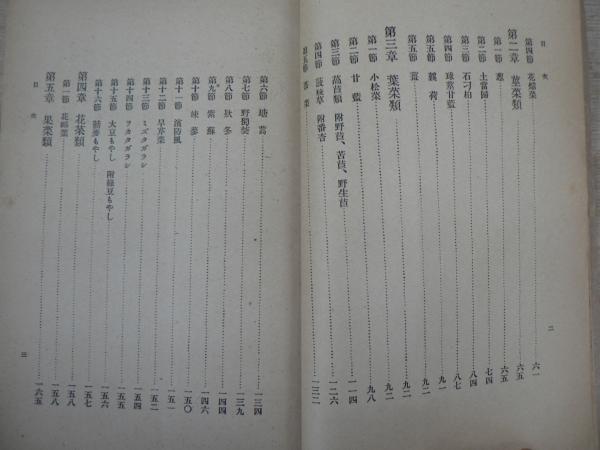 目次
第四節 花椰菜 六一
第二章 莖菜類 六五
第一節 葱 六五
第二節 土當歸 七四
第三節 石刁柏 八四
第四節 球莖甘藍 八七
第五節 蘘荷 九一
第五節 薑 九二
第三章 葉菜類 九二
第一節 小松菜 九八
第二節 甘藍
第三節 萵苣類 附野苣、苦苣、野生苣 一一四
第四節 菠薐草 附番杏 一二六
第五節 一三二
第六節 塘蒿 一三四
第七節 野蜀葵 一三九
第八節 欵冬 一四四
第九節 紫蘇 一四六
第十節 一五〇
第十一節 濱防風 一五一
第十二節 旱芹菜 一五二
第十三節 ミズタガラシ 一五四
第十四節 ヲカタガラシ 一五五
第十五節 大豆もやし 附綠豆もやし 一五六
第十六節 蕎麥もやし 一五七
第四章 花菜類 一五八
第一節 花椰菜 一五八
第五章 果菜類 一六五
目次
二
三